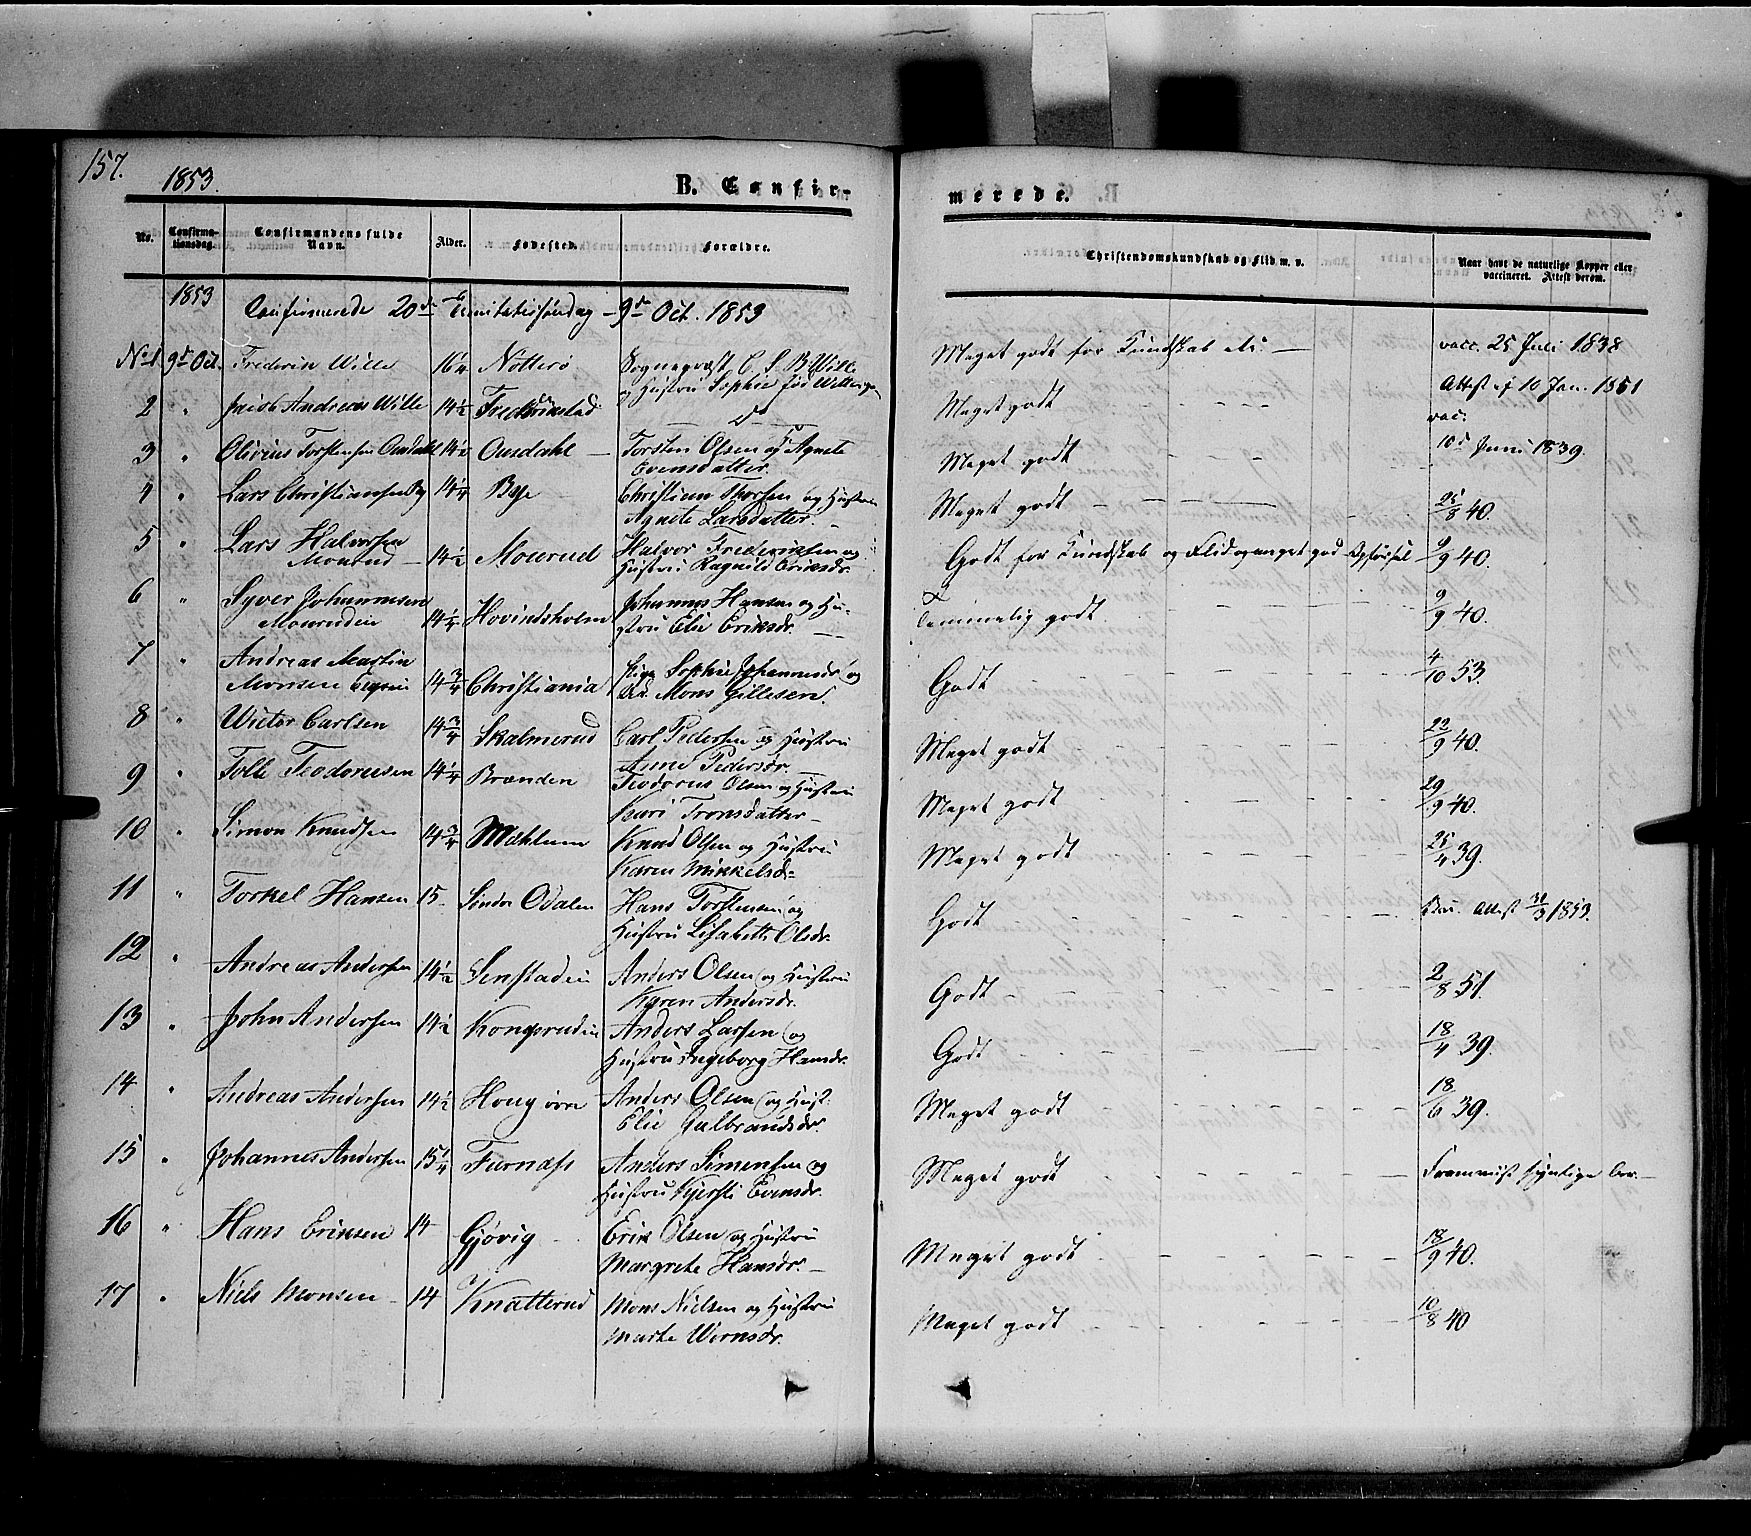 157.
1853.
B. Confir-
merede.
No.
Confirma-
tionsdag.
Confirmandens fulde
Navn.
Alder.
Fødested.
Forældre.
Christendomskundskab og Flid m. v.
Naar havt de naturlige Kopper eller
vaccineret. Attest derom.
1853
Confirmerede 20de Trinitatissøndag - 9de Oct. 1853
No 1. 9d Oct. Frederik Wille 16 1/4 Nøtterø Sognepræst C. S. B. Wille
og Hustru Sophie fød
Meget godt for Kundskab etc. — vacc. 25 Juli 1838
Attest af 10 Jan. 1851
2 " Jacob Andreas Wille 14 1/2 Fredrikstad do Meget godt
vac.
3 " Olivius Torstensen Ousdahl 14 1/2 Ousdahl — Torsten Olsen og Agnete
Evensdatter. Meget godt 10d Juni 1839.
4 " Lars Christiansen By 14 1/4 Bye Christian Thorsen og Hustru
Agnete Larsdatter. Meget godt 25/8 40.
5 " Lars Halvorsen
Mourud — 14 1/2 Mourud Halvor Fredriksen og
Hustru Ragnild Eriksdr. Godt for Kundskab og Flid og meget god Opførsel 9/9 40.
6 " Syver Johannesen
Mourudeie 14 1/4 Hovindsholm Johannes Hansen og Hu-
stru Elie Eriksdr. — Temmelig godt 9/9 40.
7 " Andreas Martin
Monsen 14 3/4 Christiania Pige Sophie Johannesdr og
Mons Gillesen. Godt 4/10 53.
8 " Victor Carlsen 14 3/4 Skalmerud Carl Pedersen og Hustru
Anne Pedersdr. Meget godt 22/9 40.
9 " Tolle Teodorusen 14 1/4 Brænden Teodorus Olsen og Hustru
Kari Tronsdatter — Meget godt 29/9 40.
10 " Simon Knudsen 14 3/4 Mæhlum Knud Olsen og Hustru
Karen Mikkelsdr. Meget godt 25/4 39.
11 " Torkel Hansen 15 Søndre Odalen Hans Torstensen og
Hustru Lisabeth Olsdr. Godt Attest 31/3 1853.
12 " Andreas Andersen 14 1/2 Senstadeie Anders Olsen og Hustru
Karen Andersdr. Godt 2/8 51.
13 " John Andersen 14 1/2 Kongsrudeie Anders Larsen og
Hustru Ingeborg Hansdr. Godt 18/4 39.
14 " Andreas Andersen 14 1/2 Anders Olsen og Hust.
Elie Gulbrandsdr. Meget godt 18/6 39.
15 " Johannes Andersen 15 1/4 Furnæss Anders Simensen og
Hustru Kjersti Evensdr. Meget godt
16 " Hans Eriksen 14 Gjøvig Erik Olsen og Hustru
Margrete Hansdr. — Meget godt 18/9 40.
17 " Niels Monsen 14 Knatterud Mons Nielsen og Hustru
Marte Meget godt 10/8 40